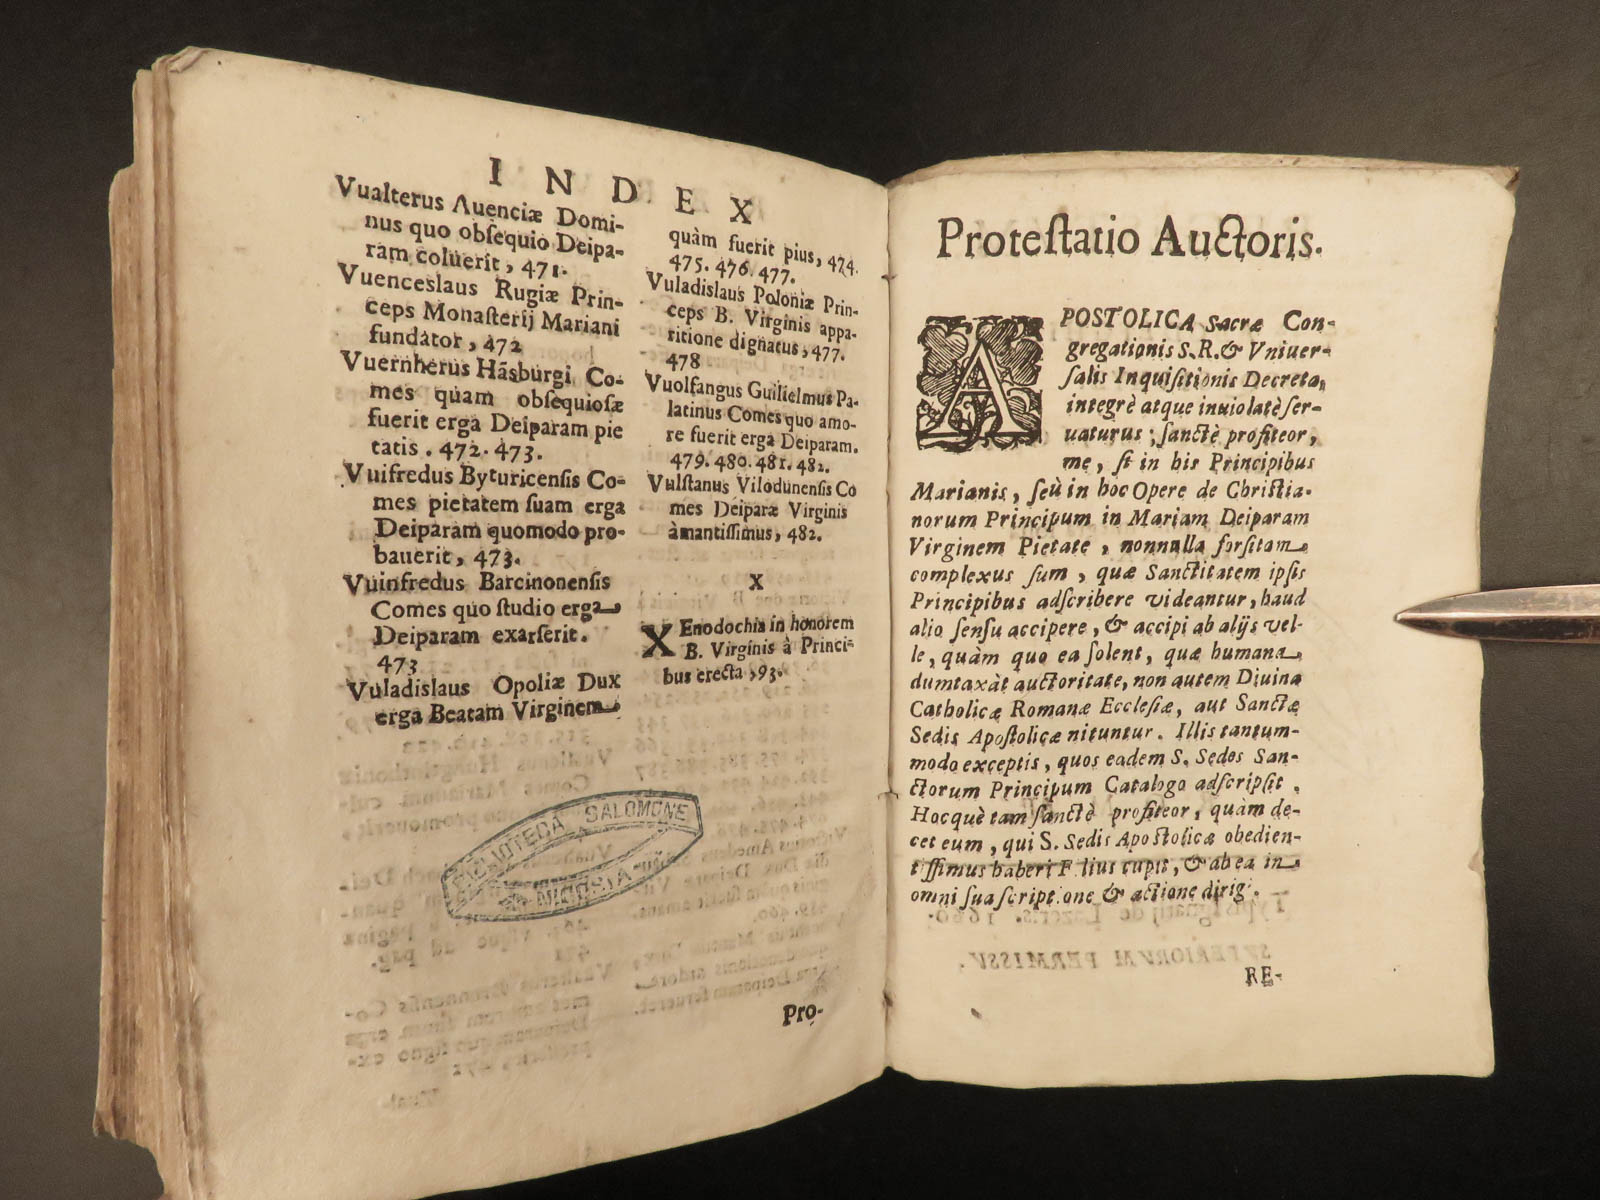 INDEX
Vualterus Auenciæ Domi-
nus quo obſequio Deipa-
ram coluerit, 471.
Vuenceslaus Rugiæ Prin-
ceps Monaſterij Mariani
fundator, 472
Vuernherus Hasburgi Co-
mes quam obſequioſæ
fuerit erga Deiparam pie
tatis. 472. 473.
Vuifredus Byturicenſis Co-
mes pietatem ſuam erga
Deiparam quomodo pro-
bauerit, 473.
Vuinfredus Barcinonenſis
Comes quo ſtudio erga
Deiparam exarſerit.
473
Vuladislaus Opoliæ Dux
erga Beatam Virginem
quàm fuerit pius, 474.
475. 476. 477.
Vuladislaus Poloniæ Prin-
ceps B. Virginis appa-
ritione dignatus, 477.
478
Vuolfangus Guilielmus Pa-
latinus Comes quo amo-
re fuerit erga Deiparam.
479. 480. 481. 482.
Vulſtanus Vilodunenſis Co
mes Deiparæ Virginis
àmantiſſimus, 482.
X
XEnodochia in honorem
B. Virginis à Princi-
bus erecta, 93.
BIBLIOTECA SALOMONE
NICOSIA
Pro-
Proteſtatio Auctoris.
APOSTOLICA Sacræ Con-
gregationis S.R. & Vniuer-
ſalis Inquiſitionis Decreta,
integrè atque inuiolatè ſer-
uaturus; ſanctè profiteor,
me, ſi in his Principibus
Marianis, ſeù in hoc Opere de Chriſtia-
norum Principum in Mariam Deiparam
Virginem Pietate, nonnulla forſitam
complexus ſum, quæ Sanctitatem ipſis
Principibus adſcribere videantur, haud
alio ſenſu accipere, & accipi ab alijs vel-
le, quàm quo ea ſolent, quæ humana
dumtaxàt auctoritate, non autem Diuina
Catholicæ Romanæ Eccleſiæ, aut Sanctæ
Sedis Apoſtolicæ nituntur. Illis tantum-
modo exceptis, quos eadem S. Sedes San-
ctorum Principum Catalogo adſcripſit.
Hocquè tam ſanctè profiteor, quàm de-
cet eum, qui S. Sedis Apoſtolicæ obedien-
tiſſimus haberi F lius cupit, & ab ea in
omni ſua ſcript.one & actione dirig.
RE-